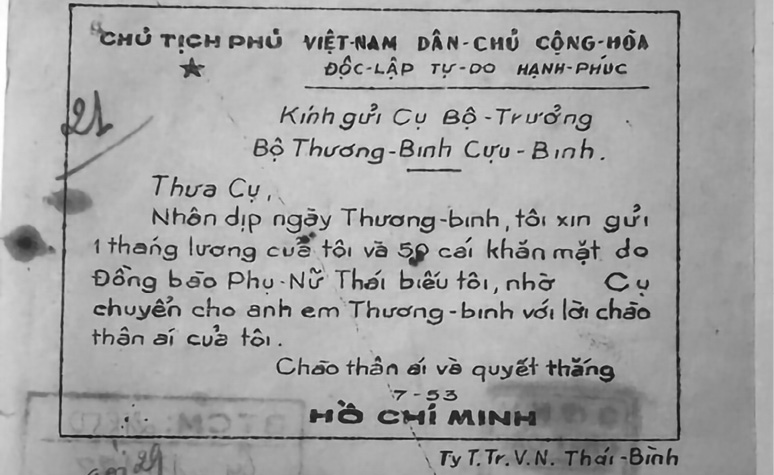 CHỦ TỊCH PHỦ VIỆT-NAM DÂN-CHỦ CỘNG-HÒA
ĐỘC-LẬP TỰ-DO HẠNH-PHÚC
21
Kính gửi Cụ Bộ-Trưởng
Bộ Thương-Binh Cựu-Binh.
Thưa Cụ,
Nhân dịp ngày Thương-binh, tôi xin gửi
1 tháng lương của tôi và 50 cái khăn mặt do
Đồng bào Phụ-Nữ Thái biếu tôi, nhờ Cụ
chuyển cho anh em Thương-binh với lời chào
thân ái của tôi.
Chào thân ái và quyết thắng
7-53
HỒ CHÍ MINH
Ty T.Tr.V.N. Thái-Bình
29